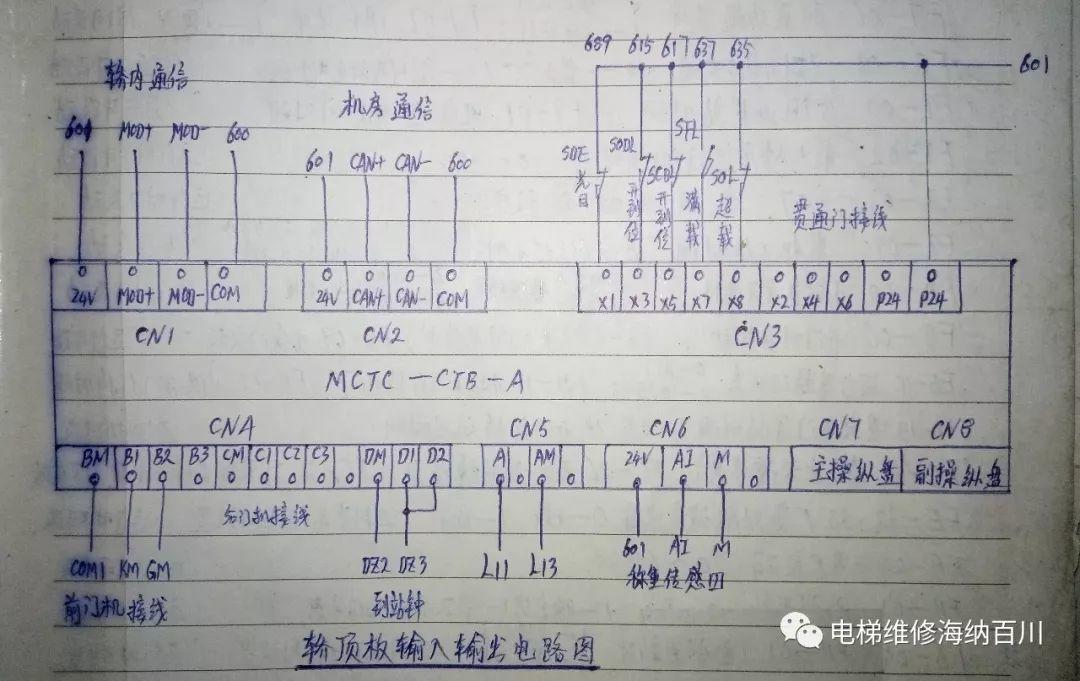 轿内通信
601 MOD+ MOD- 600
机房通信
601 CAN+ CAN- 600
609 615 617 637 635
601
SDE SODL SCDL SFL SOL
光目 开到位 开到位 满载 超载
贯通门接线
24V MOD+ MOD- COM
24V CAN+ CAN- COM
X1 X3 X5 X7 X8 X2 X4 X6 P24 P24
CN1 CN2 CN3
MCTC-CTB-A
CNA CN5 CN6 CN7 CN8
BM B1 B2 B3 CM C1 C2 C3 DM D1 D2
A AM
24V AI M
主操纵盘 副操纵盘
后门机接线
COM1 KM GM
DZ2 DZ3
L11 L13
601 AI M
前门机接线
到站钟
称重传感
轿顶板输入输出电路图
电梯维修海纳百川